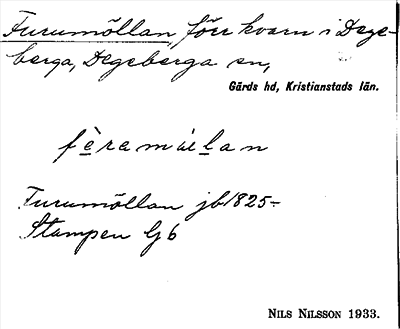 Furumöllan, förr kvarn i Dege-
berga, Degeberga sn,
Gärds hd, Kristianstads län.
Furumöllan jb 1825-
Stampen Gb
NILS NILSSON 1933.